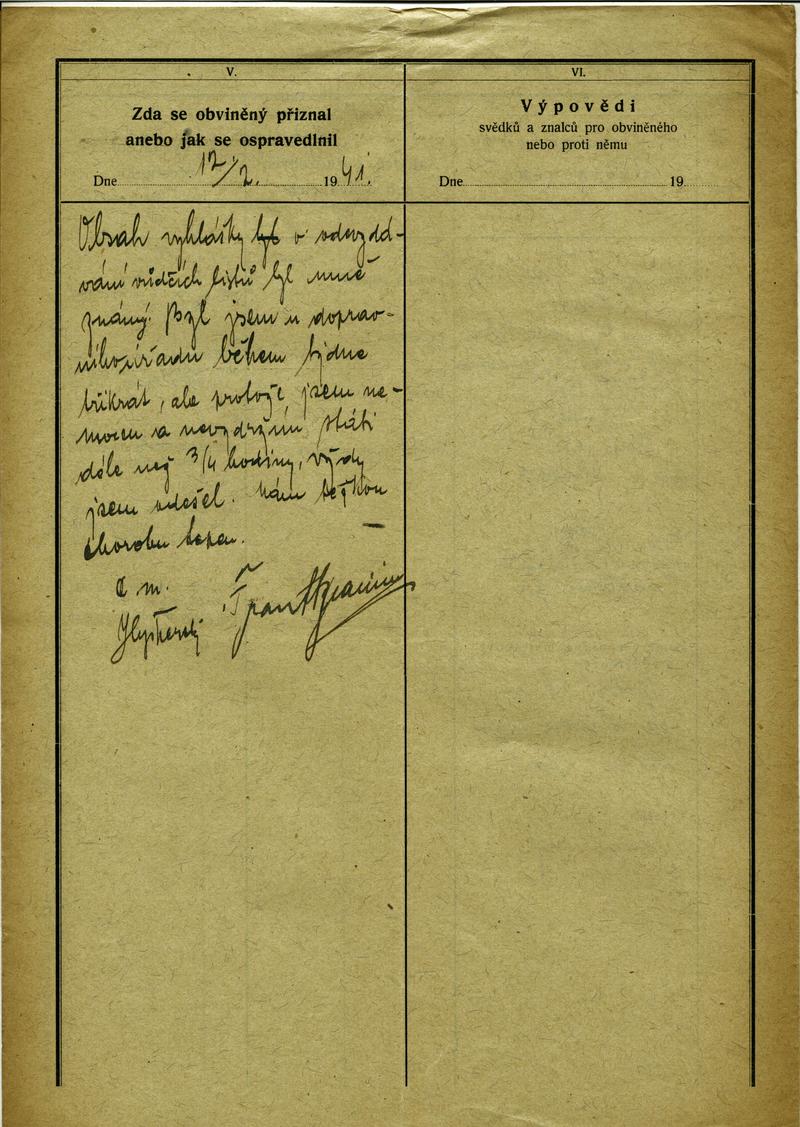 V.
Zda se obviněný přiznal
anebo jak se ospravedlnil
Dne 12/2. 1941.
Obsah vyhlášky byl o odevzdá-
vání vůdčích listů byl mně
známý. Byl jsem u doprav-
ního úřadu během týdne
třikrát, ale protože jsem ne-
mocen a nevydržím státi
déle než 3/4 hodiny, vždy
jsem odešel. Mám těžkou
chorobu tepen.
VI.
Výpovědi
svědků a znalců pro obviněného
nebo proti němu
Dne 19